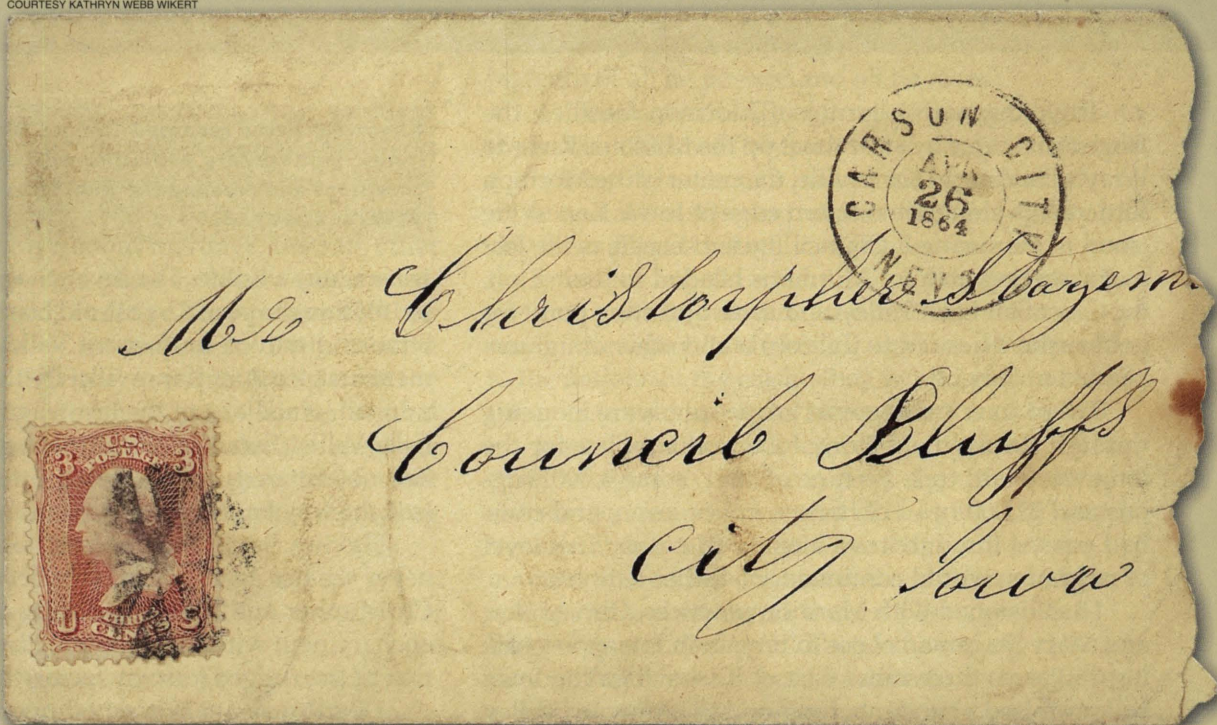 COURTESY KATHRYN WEBB WIKERT
CARSON CITY
APR
26
1864
NEV. T.
Mr Christorpher Stagem
Council Bluffs
City Iowa
U.S.
POSTAGE
3 3
U S
THREE
CENTS